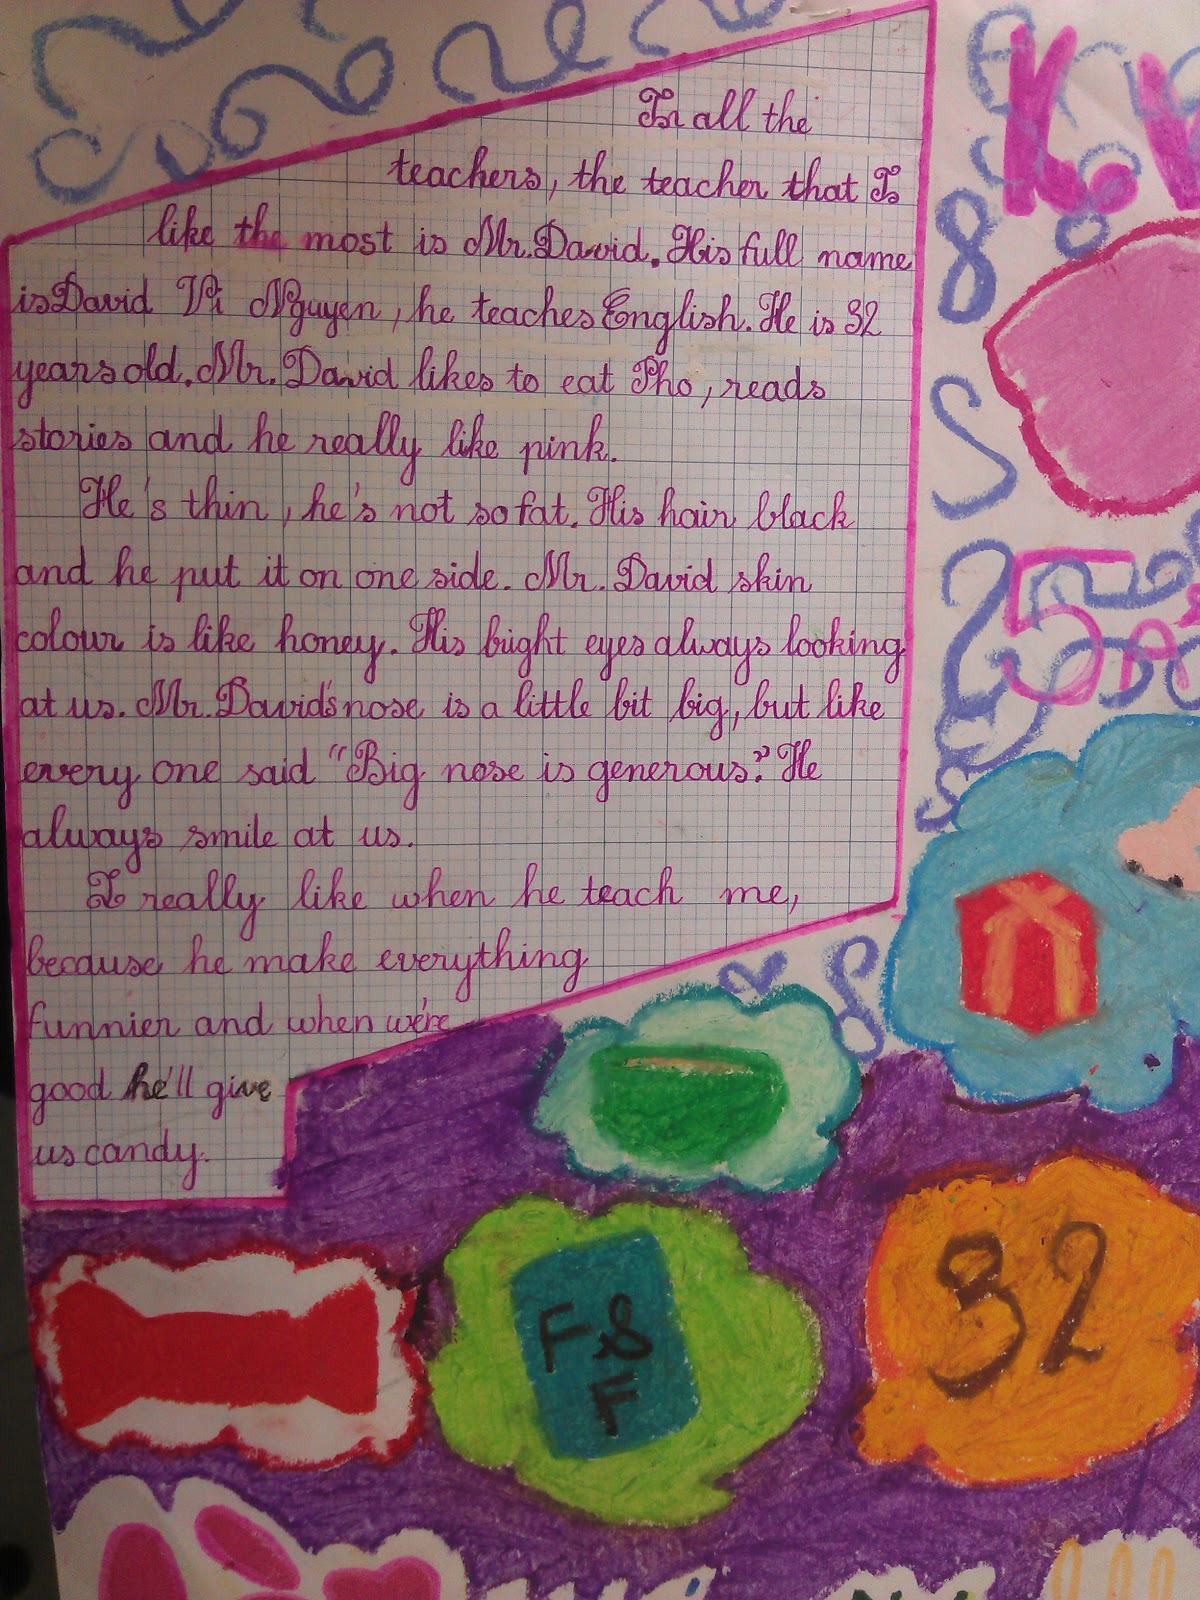 In all the
teachers, the teacher that I
like the most is Mr. David. His full name
is David Vi Nguyen, he teaches English. He is 32
years old. Mr. David likes to eat Pho, reads
stories and he really like pink.
He's thin, he's not so fat. His hair black
and he put it on one side. Mr. David skin
colour is like honey. His bright eyes always looking
at us. Mr. David's nose is a little bit big, but like
every one said "Big nose is generous." He
always smile at us.
I really like when he teach me,
because he make everything
funnier and when we're
good he'll give
us candy.
K.
5A
F&
F
32